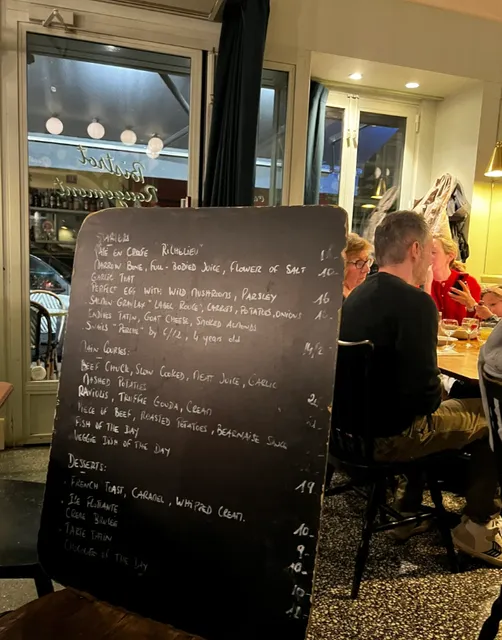 Bistrot
STARTERS
PATE EN CROUTE "RICHELIEU"
MARROW BONE, FULL-BODIED JUICE, FLOWER OF SALT 10.-
GARLIC TOAST
PERFECT EGG WITH WILD MUSHROOMS, PARSLEY 16
SALMON GRAVLAX "LABEL ROUGE", CARROTS, POTATOES, ONIONS
ENDIVES TATIN, GOAT CHEESE, SMOKED ALMONDS
SNAILS by 6/12, 4 years old
MAIN COURSES:
BEEF CHUCK, SLOW COOKED, MEAT JUICE, GARLIC
MASHED POTATOES
RAVIOLIS, TRUFFLE GOUDA, CREAM
PIECE OF BEEF, ROASTED POTATOES, BEARNAISE SAUCE
FISH OF THE DAY
VEGGIE DISH OF THE DAY 19
DESSERTS:
FRENCH TOAST, CARAMEL, WHIPPED CREAM. 10-
ILE FLOTTANTE 9-
CREME BRULEE 10-
TARTE TATIN
OF THE DAY